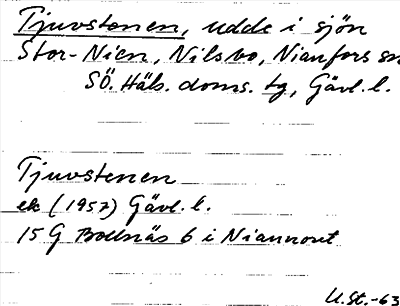 Tjuvstenen, udde i sjön
Stor-Nien, Nilsbo, Nianfors sn
SÖ. Häls. doms. tg, Gävl. l.
Tjuvstenen
ek (1957) Gävl. l.
15 G Bollnäs 6 i Niannoret
U.St.-63